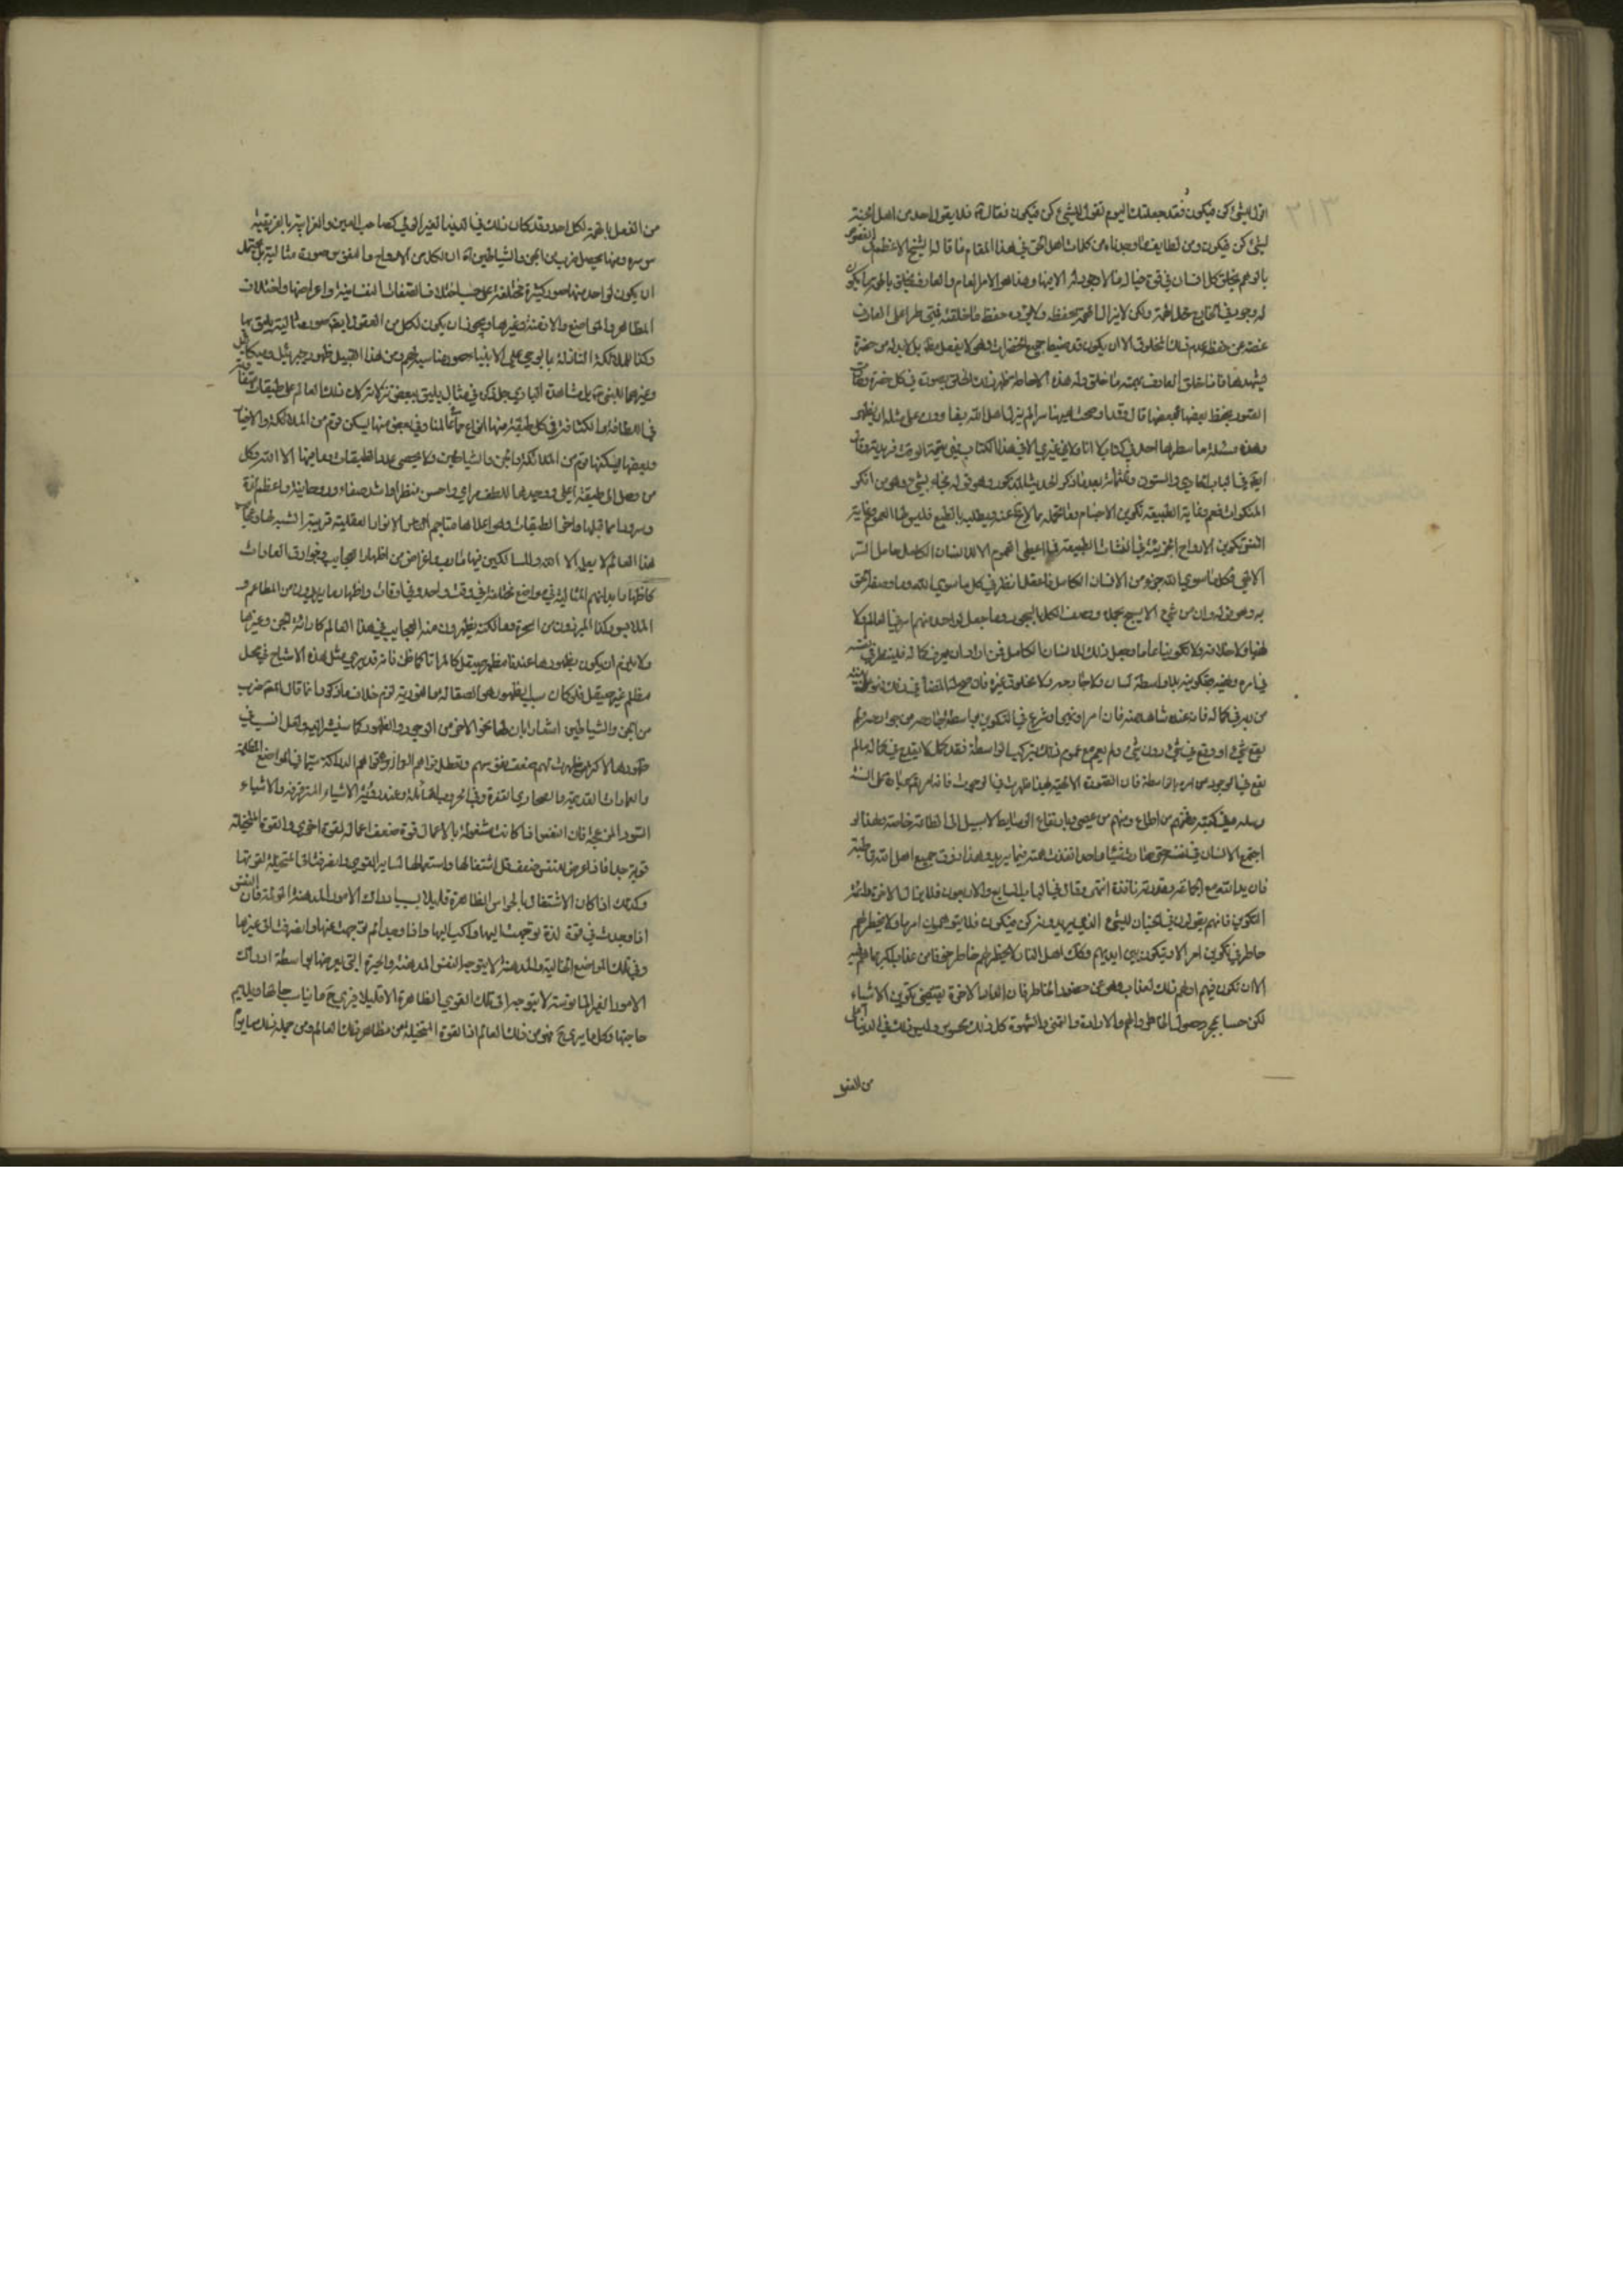 اقول للشيء كن فيكون فقد جعلتك اليوم تقول للشيء كن فيكون فقال فلا يقول احد من اهل الجنة
لشيء كن فيكون ومن لطايف ما وجدناه من كلمات اهل الحق في هذا المقام ما قاله الشيخ الاعظم في الفصوص
بالوهم يخلق كل انسان في قوة خياله ما لا وجود له الا فيها وهذا هو الامر العام والعارف يخلق بالهمة ما يكون
له وجود في الخارج محل الهمة ولكن لا يزال الهمة تحفظه ولا يؤده حفظ ما خلقته فمتى طرا على العارف
غفلة عن حفظ عدم ذلك المخلوق الا ان يكون قد ضبط جميع الحضرات وهو لا يغفل بل لا بد له من حضرة
يشهدها فاذا خلق العارف بهمته ما خلق وله هذه الاحاطة ظهر ذلك الخلق بصورته في كل حضرة وصارت
الصور يحفظ بعضها بعضها قال وقد اوضحت هيهنا سرا لم يزل اهل الله يغارون على مثله ان يظهر
وهذه مسئلة ما سطرها احد في كتاب لا انا ولا غيري الا في هذا الكتاب فهي يتيمة الوقت فريدته وقال
ايضا في الباب الحادي والستون وثلثمائة بعد ما ذكر الحديث المذكور وهو قوله فجاء بشيء وهو من انكر
المنكرات فعم وغاية الطبيعة تكوين الاجسام وما تحمله مما لا يخلو عنه ويطلبه بالطبع فليس لها العموم وغاية
النفس تكوين الارواح الجزئية في النشات الطبيعة فما اعطى العموم الا للانسان الكامل حامل السر
الالهي فكل ما سوى الله جزء من الانسان الكامل فاعقل وانظر في كل ما سوى الله وما وصفه الحق
به وهو قوله وان من شيء الا يسبح بحمده ووصف الكل بالسجود وما جعل لواحد منهم امرا في العالم ولا
نهيا ولا خلافة ولا تكوينا عاما وجعل ذلك للانسان الكامل فمن اراد ان يعرف كماله فلينظر في نفسه
في امره ونهيه وتكوينه بلا واسطة لسان ولا جارحة ولا مخلوق غيره فان صح له المضاء في ذلك فهو على بينة
من ربه في كماله فان عنده شاهد منه فان امر او نهى او شرع في التكوين بواسطة جارحة من جوارحه فلم
يقع شيء او وقع في شيء دون شيء ولم يعم مع عموم ذلك بترك الواسطة فقد كمل لا يقدح في كماله ما لم
يقع في الوجود من امره بالواسطة فان الصورة الالهية بهذا ظهرت في الوجود فانه امر تعالى عباده على السنة
رسله وفي كتبه فمنهم من اطاع ومنهم من عصى وبارتفاع الوسايط لا سبيل الى الطاعة خاصة وهذا لو
اجتمع الانسان في نفسه حتى صار شيئا واحدا نفذت همته فيما يريد وهذا ذوق جميع اهل الله قاطبة
فان يد الله مع الجماعة وقدرته نافذة انتهى وقال في الباب السابع والاربعون فلا يزال الاخرة دائمة
التكوين فانهم يقولون في الجنان للشيء الذي يريدونه كن فيكون فلا يتوهمون امرا ولا يخطر لهم
خاطر في تكوين امر الا وتيكون بين ايديهم وكذلك اهل النار لا يخطر لهم خاطر خوفا من عذاب اكبر مما هم فيه
الا ان تكون فيهم او لهم ذلك العذاب وهو عن حضور الخاطر فان الدار الاخرة تقتضي تكوين الاشياء
لكن حسا بمجرد حصول الخاطر والهم والارادة والتمني والشهوة كل ذلك محسوس وليس ذلك في الدنيا
من الفعل
من الفعل بالهمة لكل احد وقد كان ذلك في الدنيا لغير الولي كصاحب العين والغرابية بافريقية
ومنها يحصل ضرب من الجن والشياطين ان لكل من الارواح ما الفق من صورة مثالية بل يحتمل
ان يكون لواحد منها صور كثيرة مختلفة على حسب اختلاف الصفات النفسانية واعراضها واختلاف
المظاهر والمواضع والازمنة وغيرها ويجوز ان يكون لكل من العقول ايضا صورة مثالية يليق بها
وكذا للملائكة النازلة بالوحي على الانبياء صورة مناسبة لهم ومن هذا القبيل ظهور جبرئيل وميكائيل
وغيرهما للنبي بل مشاهدة الباري جل ذكره في مثال يليق ببعض تنزلاته لان ذلك العالم على طبقات متفاوتة
في اللطافة والكثافة في كل طبقة منها انواع مما في عالمنا وفي بعض منها يسكن قوم من الملائكة والاخيار
وبعضها يسكنها قوم من الملائكة والجن والشياطين ولا يحصى عدد الطبقات وما فيها الا الله وكل
من وصل الى طبقة اعلى وجدها الطف مراي واحسن منظرا واشد صفاء وروحانية واعظم لذة
وسرورا مما قبلها واخر الطبقات وهو اعلاها متاخم لعالم الانوار العقلية قريبة الشبه لها وعجايب
هذا العالم لا يعلمه الا الله وللسالكين فيها مآرب واغراض من اظهار العجايب وخوارق العادات
كاظهار ابدانهم المثالية في مواضع مختلفة في وقت واحد وفي اوقات واظهار ما يريدون من المطاعم و
الملابس وكذا المبرزون من السحرة والكهنة يظهرون منه العجايب في هذا العالم كاراءة الجن وغيرها
ولا يلزم ان يكون بظهورها عندنا مظهر صيقل كالمراة كما ظن فانه قد يرى مثل هذه الاشباح في محل
مظلم غير صيقل فلو كان سبب الظهور هو الصقالة والنورية لزم خلاف ما ذكر وانما قال اكثر ضرب
من الجن والشياطين اشعارا بان لهما نحوا اخر من الوجود والظهور كما سيشير اليه ولعل السبب في
ظهورها لاكثر من ظهرت لهم ضعف نفوسهم وتعطل حواسهم سيما في المواضع المظلمة
والعمارات القديمة والصحاري القفرة وفي الحروب الهائلة وعند رؤية الاشياء المتفرقة والاشياء
السود المزعجة فان النفس اذا كانت مشغولة باعمال قوة ضعف اعمالها لقوة اخرى والقوة المتخيلة
قوية جدا فاذا عرض للنفس ضعف قل اشتغالها واستعمالها لساير القوى وانصرفت الى المتخيلة لقوتها
وكذلك اذا كان الاشتغال بالحواس الظاهرة قليلا بسبب ادراك الامور المدهشة المولمة فان النفس
اذا وجدت في قوة لذة توجهت اليها واكبت اليها واذا وجد الم توجهت عنها وانصرفت الى غيرها
وفي تلك المواضع الخالية والمدهشة لا يتوجه النفس المدهشة والحيرة التي يعرضها بواسطة ادراك
الامور الغير المانوسة لا يتوجه الى تلك القوى الظاهرة الا قليلا فيرى ح ما يناسب حالها ويلايم
حاجتها وكل ما يرى ح فهو من ذلك العالم اذ القوة المتخيلة من مظاهر ذلك العالم ومن جملة ذلك ما